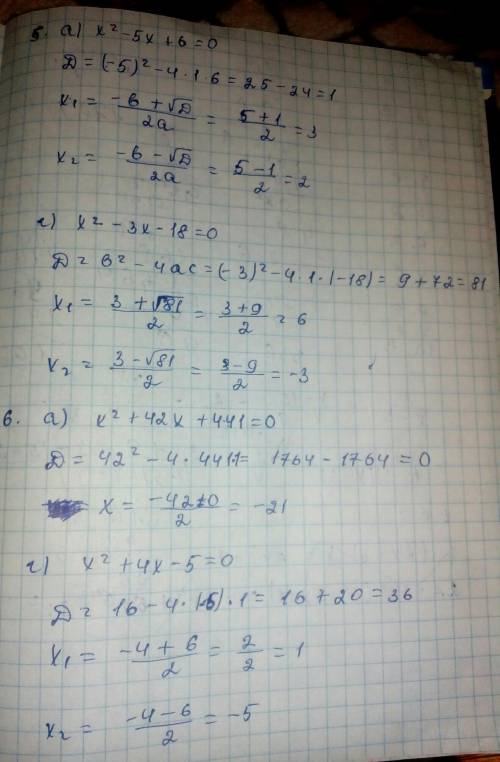 5. а) x² - 5x + 6 = 0
Д = (-5)² - 4 · 1 6 = 25 - 24 = 1
x₁ = (-в + √Д)/2a = (5 + 1)/2 = 3
x₂ = (-в - √Д)/2a = (5 - 1)/2 = 2
г) x² - 3x - 18 = 0
Д = в² - 4ac = (-3)² - 4 · 1 · (-18) = 9 + 72 = 81
x₁ = (3 + √81)/2 = (3 + 9)/2 = 6
x₂ = (3 - √81)/2 = (3 - 9)/2 = -3
6. а) x² + 42x + 441 = 0
Д = 42² - 4 · 441 = 1764 - 1764 = 0
x = (-42±0)/2 = -21
г) x² + 4x - 5 = 0
Д = 16 - 4 · (-5) · 1 = 16 + 20 = 36
x₁ = (-4 + 6)/2 = 2/2 = 1
x₂ = (-4 - 6)/2 = -5